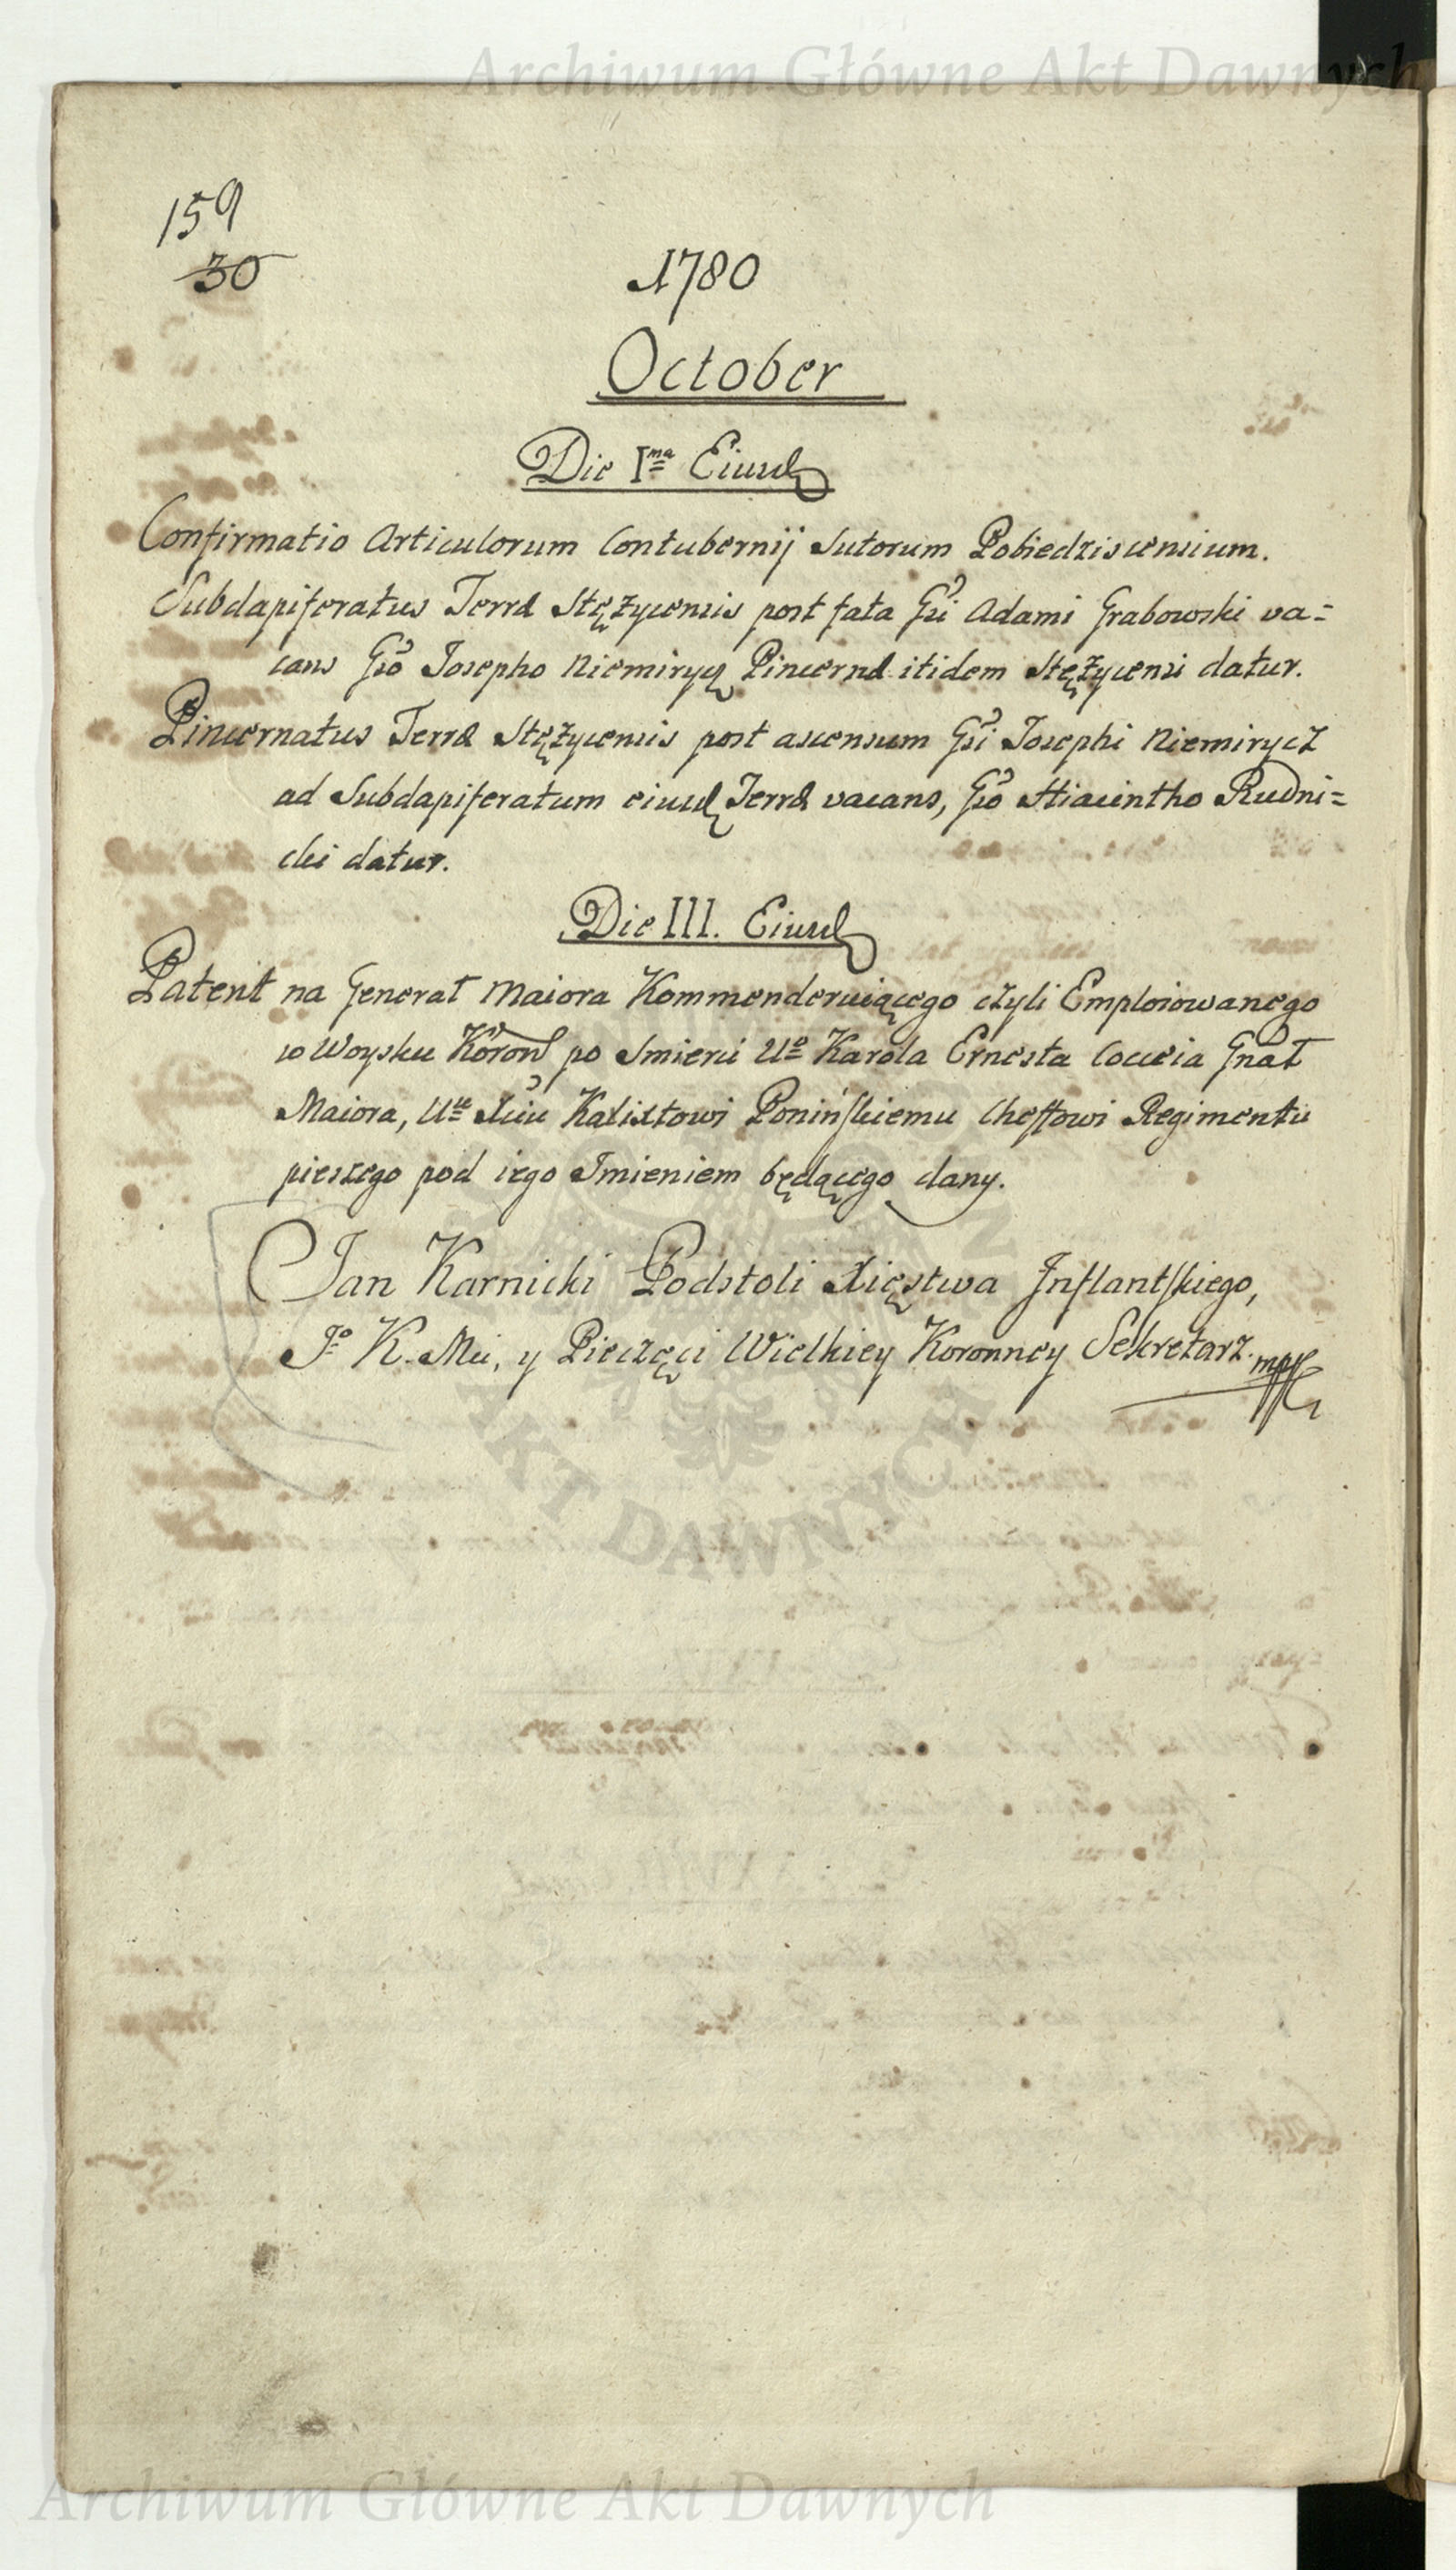 Archiwum Główne Akt Dawnych
159
30
1780
October
Die Ima Eiusd
Confirmatio Articulorum Contubernij Sutorum Pobiedziscensium.
Subdapiferatus Terræ Stężycensis post fata Gsi Adami Grabowski va=
cans Gso Josepho Niemirycz Pincernæ itidem Stężycensi datur.
Pincernatus Terræ Stężycensis post ascensum Gsi Josephi Niemirycz
ad Subdapiferatum eiusd Terræ vacans, Gso Hiacintho Rudni=
cki datur.
Die III. Eiusd
Patent na Generał Maiora Kommenderuiącego czyli Emploiowanego
w Woysku Koron po Smierci Uo Karola Ernesta Cocceia Gnał
Maiora, Xciu Kalixtowi Ponińskiemu Cheffowi Regimentu
pieszego pod iego Imieniem będącego dany.
Jan Karnicki Podstoli Xięstwa Inflantskiego,
Jo K. Mci, y Pieczęci Wielkiey Koronney Sekretarz mpp
AKT DAWNYCH
Archiwum Główne Akt Dawnych